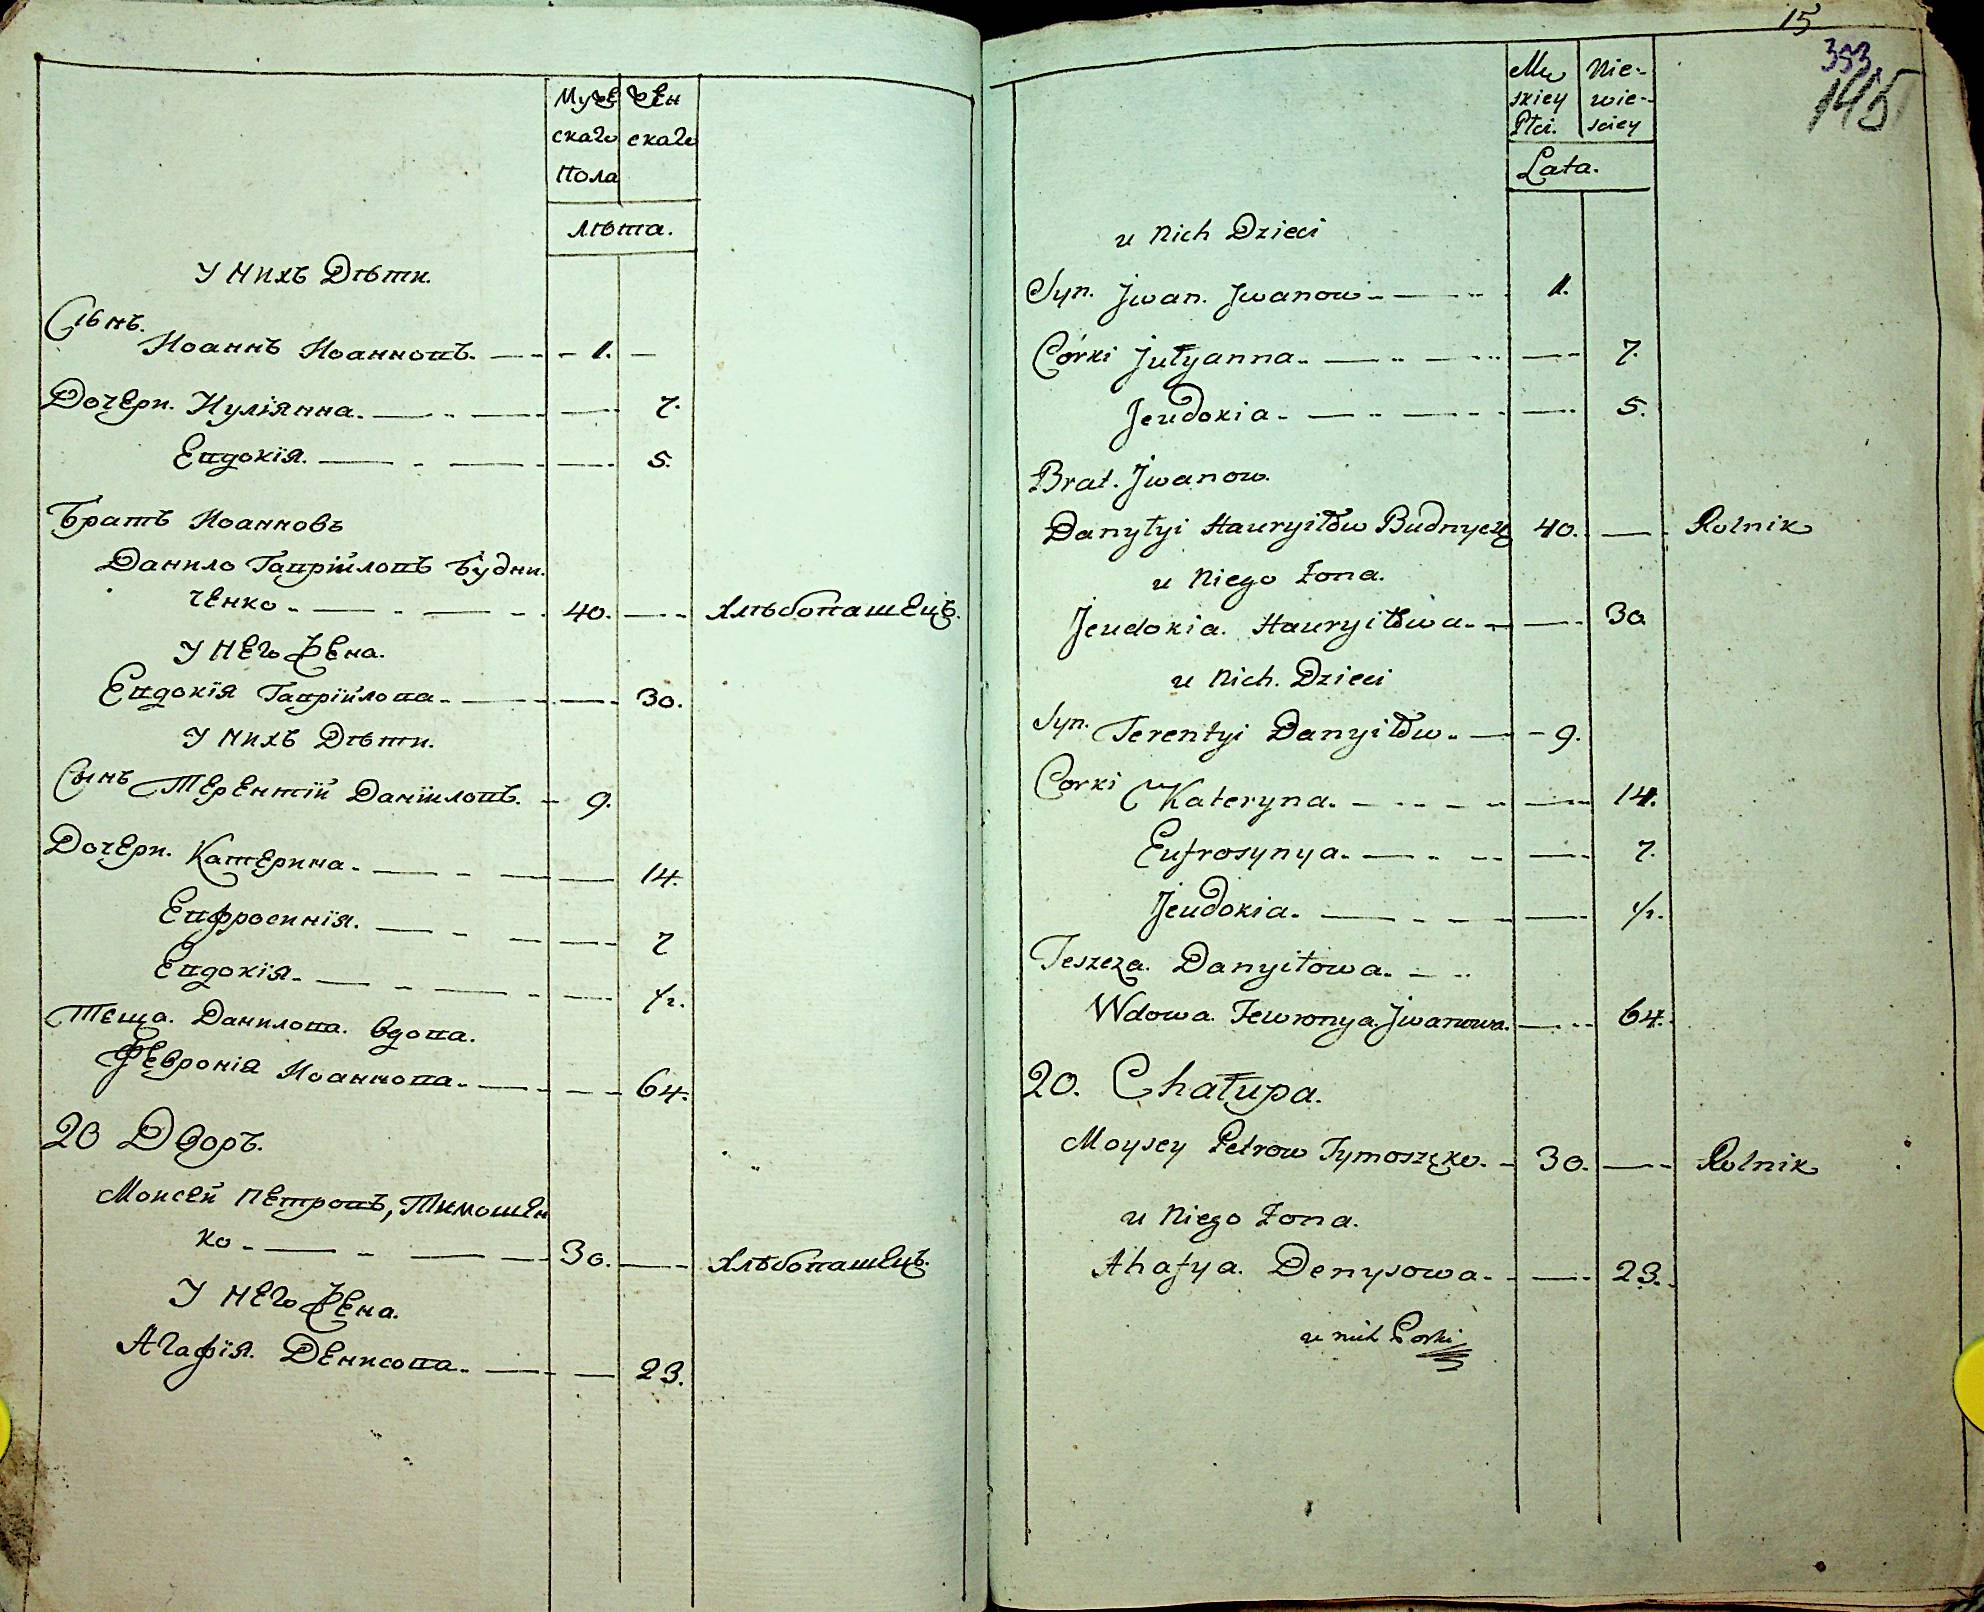 Муже Жен
скаго скаго
Пола
лѣта.
У нихъ Дѣти.
Сынъ.
Иоаннъ Иоанновъ. — - 1. —
Дочери. Иулiянна. — — 7.
Евдокiя. — — 5.
Братъ Иоанновъ
Данило Гаврiйловъ Будни
ченко - — 40. — Хлѣбопашецъ.
У него Жена.
Евдокiя Гаврiйлова - — 30.
У нихъ Дѣти.
Сынъ Терентiй Данiиловъ. - 9.
Дочери. Катерина. — — 14.
Евфросинiя. — — 7
Евдокiя. — — 1/2.
Теща. Данилова. вдова.
Феvронiя Иоаннова - — 64.
20 Дворъ.
Моисей Петровъ, Тимошен
ко - — 30. — Хлѣбопашецъ.
У него Жена.
Агафiя. Денисова. — — 23.
15
353
145
Mę Nie-
skiey wie-
Płci. sciey
Lata.
u Nich Dzieci
Syn. Jwan. Jwanow - — 1.
Córki Jułyanna. — — 7.
Jeudokia. — — 5.
Brat. Jwanow.
Danyłyi Hauryiłow Budnycz 40. — Rolnik
u Niego Żona.
Jeudokia. Hauryiłowa. — 30
u Nich. Dzieci
Syn. Terentyi Danyiłow. — - 9.
Corki Kateryna. — — 14.
Eufrosynya. — — 7.
Jeudokia. — — 1/2.
Teszcza. Danyiłowa. —
Wdowa. Fewronya. Jwanowa. — 64.
20. Chałupa.
Moysey Petrow Tymoszęko. - 30. — Rolnik
u Niego Żona.
Ahafya. Denysowa. — 23.
u nich Corki